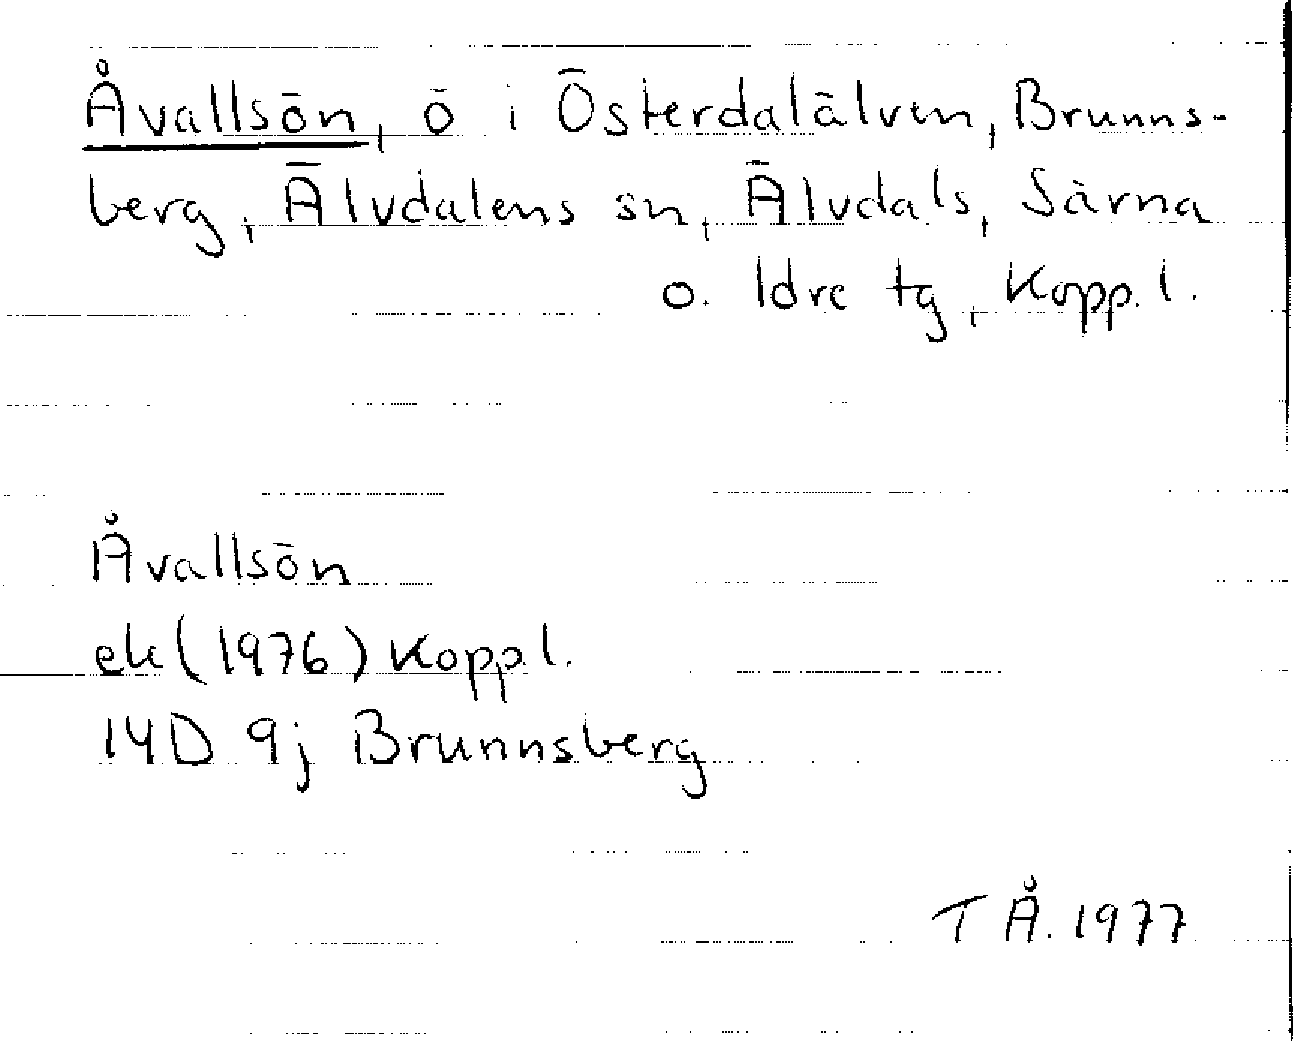 Åvallsön, ö i Österdalälven, Brunns-
berg, Älvdalens sn, Älvdals, Särna
o. Idre tg, Kopp. l.
Åvallsön
ek (1976) Kopp l.
14D 9j Brunnsberg
T Å. 1977